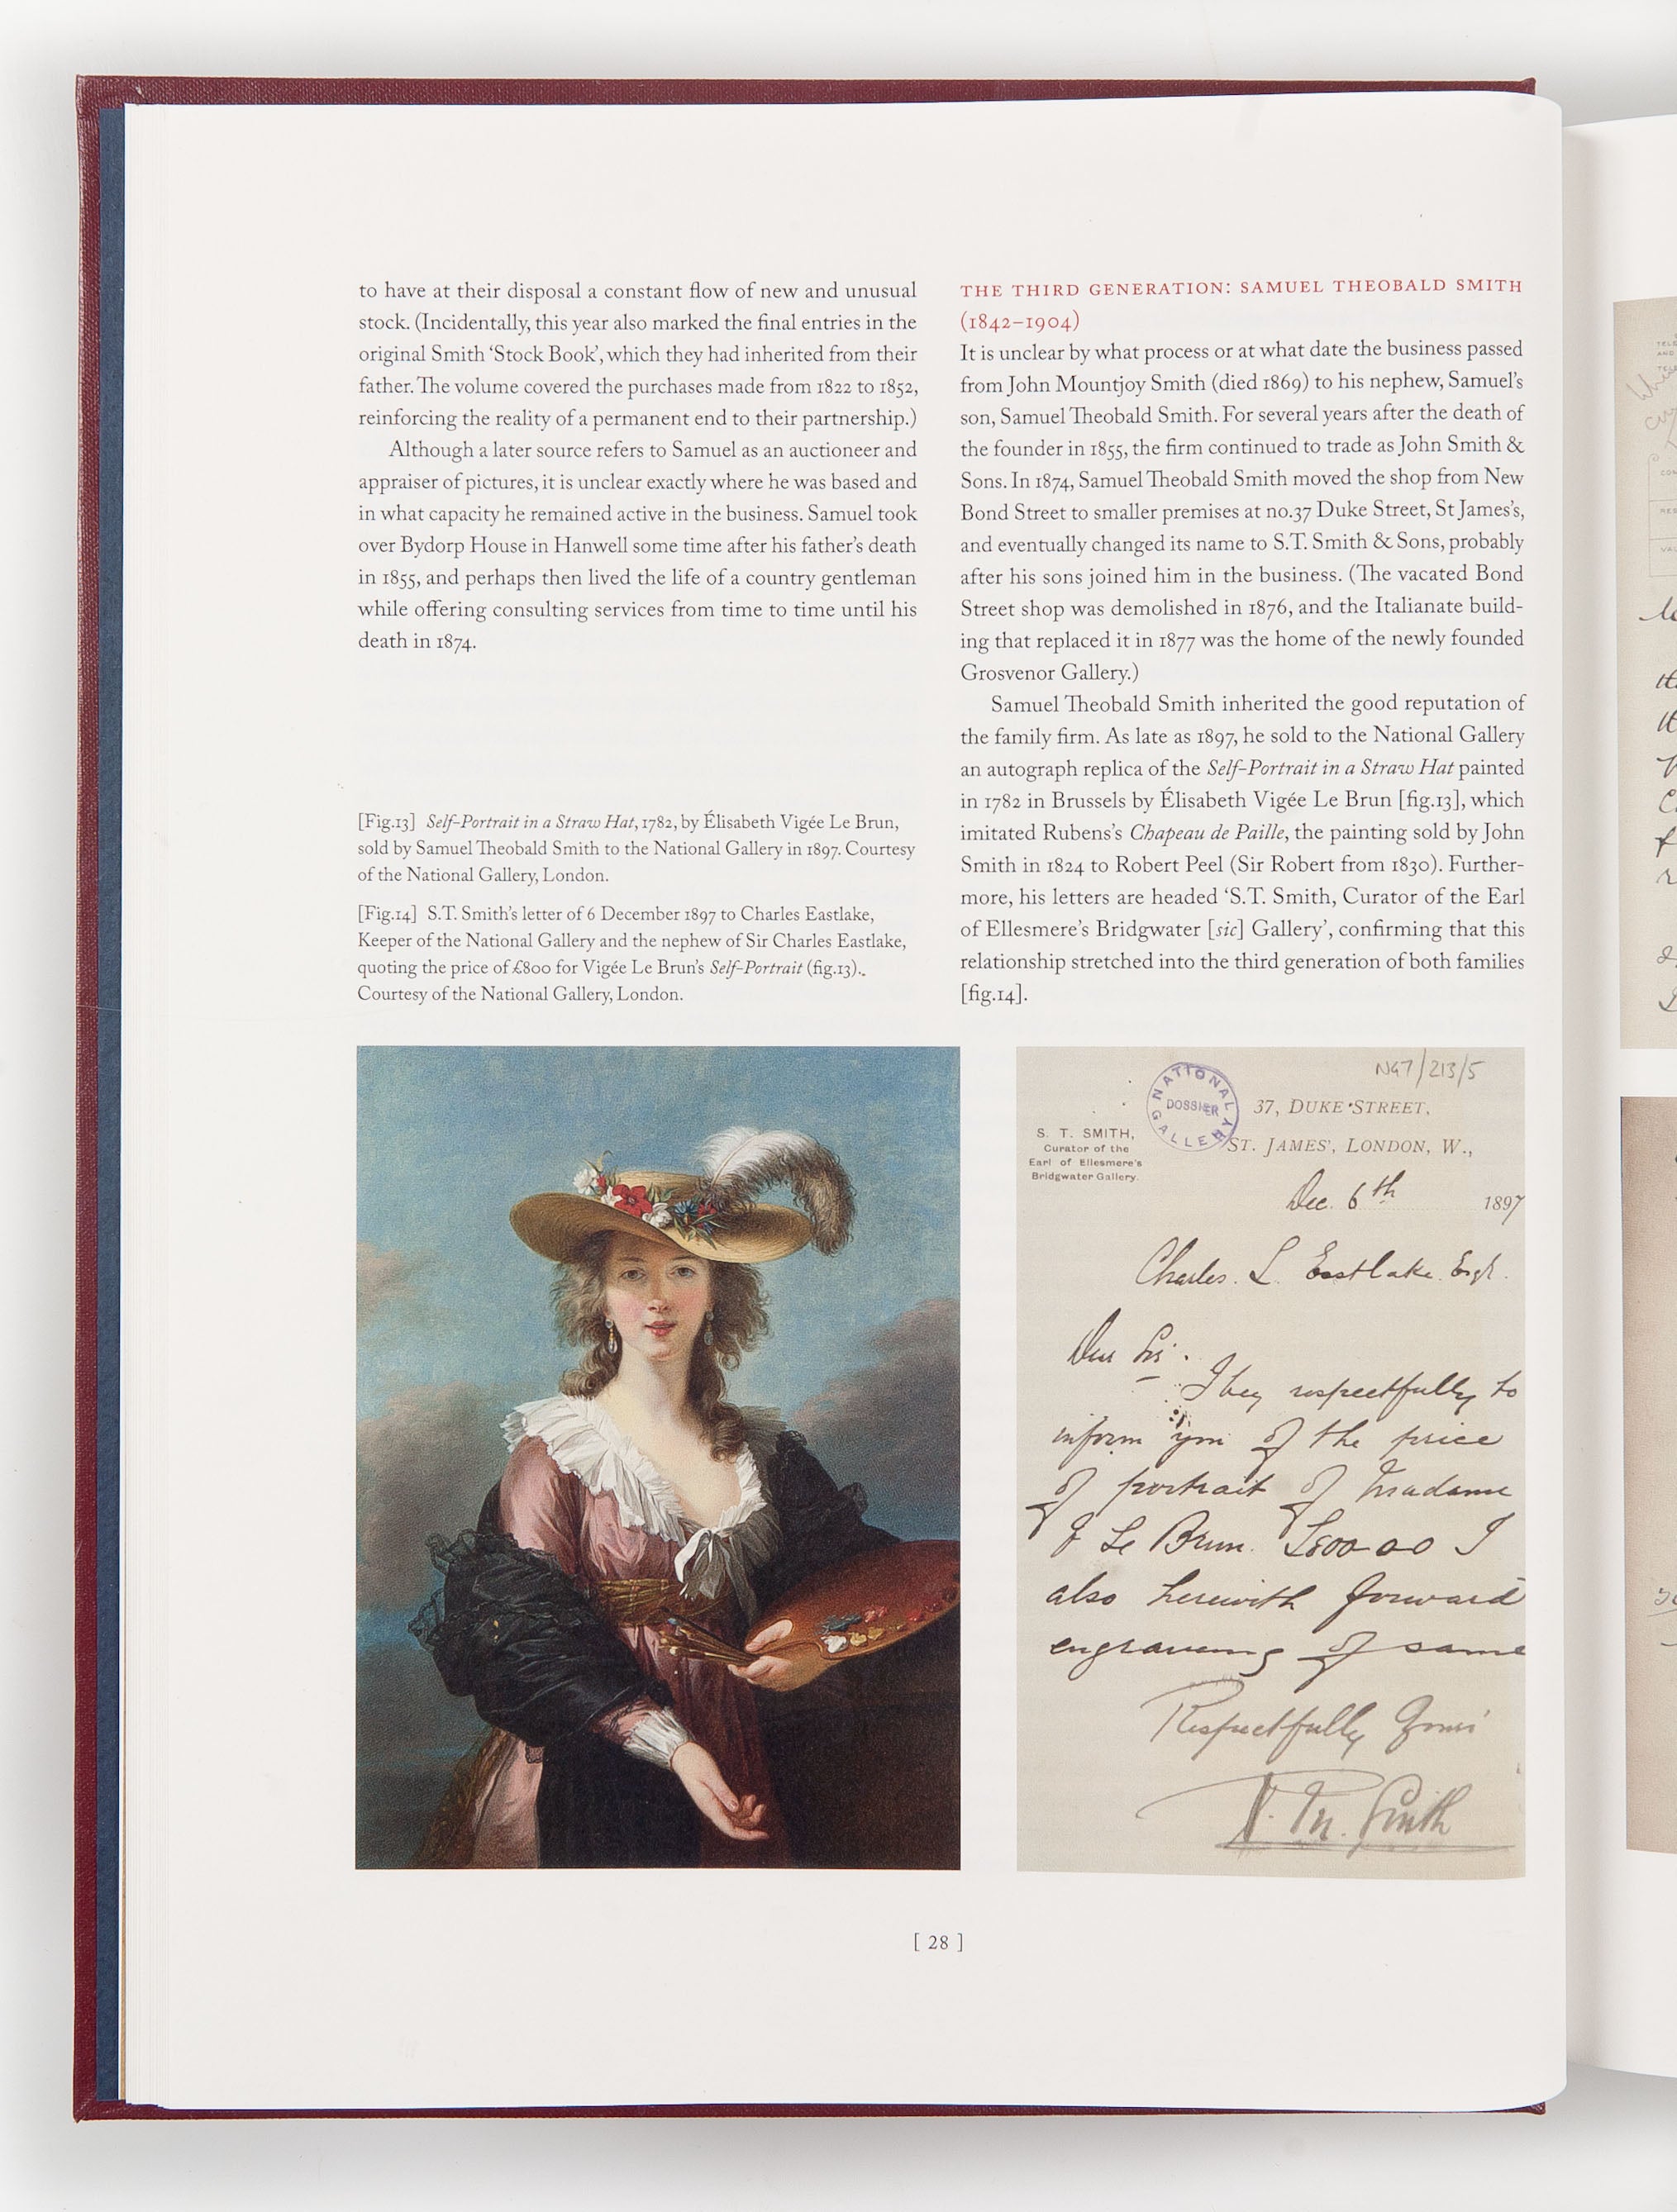 to have at their disposal a constant flow of new and unusual
stock. (Incidentally, this year also marked the final entries in the
original Smith ‘Stock Book’, which they had inherited from their
father. The volume covered the purchases made from 1822 to 1852,
reinforcing the reality of a permanent end to their partnership.)
Although a later source refers to Samuel as an auctioneer and
appraiser of pictures, it is unclear exactly where he was based and
in what capacity he remained active in the business. Samuel took
over Bydorp House in Hanwell some time after his father’s death
in 1855, and perhaps then lived the life of a country gentleman
while offering consulting services from time to time until his
death in 1874.
[Fig.13] Self-Portrait in a Straw Hat, 1782, by Élisabeth Vigée Le Brun,
sold by Samuel Theobald Smith to the National Gallery in 1897. Courtesy
of the National Gallery, London.
[Fig.14] S.T. Smith’s letter of 6 December 1897 to Charles Eastlake,
Keeper of the National Gallery and the nephew of Sir Charles Eastlake,
quoting the price of £800 for Vigée Le Brun’s Self-Portrait (fig.13)..
Courtesy of the National Gallery, London.
THE THIRD GENERATION: SAMUEL THEOBALD SMITH
(1842–1904)
It is unclear by what process or at what date the business passed
from John Mountjoy Smith (died 1869) to his nephew, Samuel’s
son, Samuel Theobald Smith. For several years after the death of
the founder in 1855, the firm continued to trade as John Smith &
Sons. In 1874, Samuel Theobald Smith moved the shop from New
Bond Street to smaller premises at no.37 Duke Street, St James’s,
and eventually changed its name to S.T. Smith & Sons, probably
after his sons joined him in the business. (The vacated Bond
Street shop was demolished in 1876, and the Italianate build-
ing that replaced it in 1877 was the home of the newly founded
Grosvenor Gallery.)
Samuel Theobald Smith inherited the good reputation of
the family firm. As late as 1897, he sold to the National Gallery
an autograph replica of the Self-Portrait in a Straw Hat painted
in 1782 in Brussels by Élisabeth Vigée Le Brun [fig.13], which
imitated Rubens’s Chapeau de Paille, the painting sold by John
Smith in 1824 to Robert Peel (Sir Robert from 1830). Further-
more, his letters are headed ‘S.T. Smith, Curator of the Earl
of Ellesmere’s Bridgwater [sic] Gallery’, confirming that this
relationship stretched into the third generation of both families
[fig.14].
NG7/213/5
NATIONAL GALLERY
DOSSIER
37, DUKE STREET,
ST. JAMES', LONDON, W.,
S. T. SMITH,
Curator of the
Earl of Ellesmere's
Bridgwater Gallery.
Dec. 6th 1897
Charles. L. Eastlake. Esq.
Dear Sir.
I beg respectfully to
inform you of the price
of portrait of Madame
Le Brun. £800-0-0 I
also herewith forward
engraving of same
Respectfully Yours
Smith
[ 28 ]